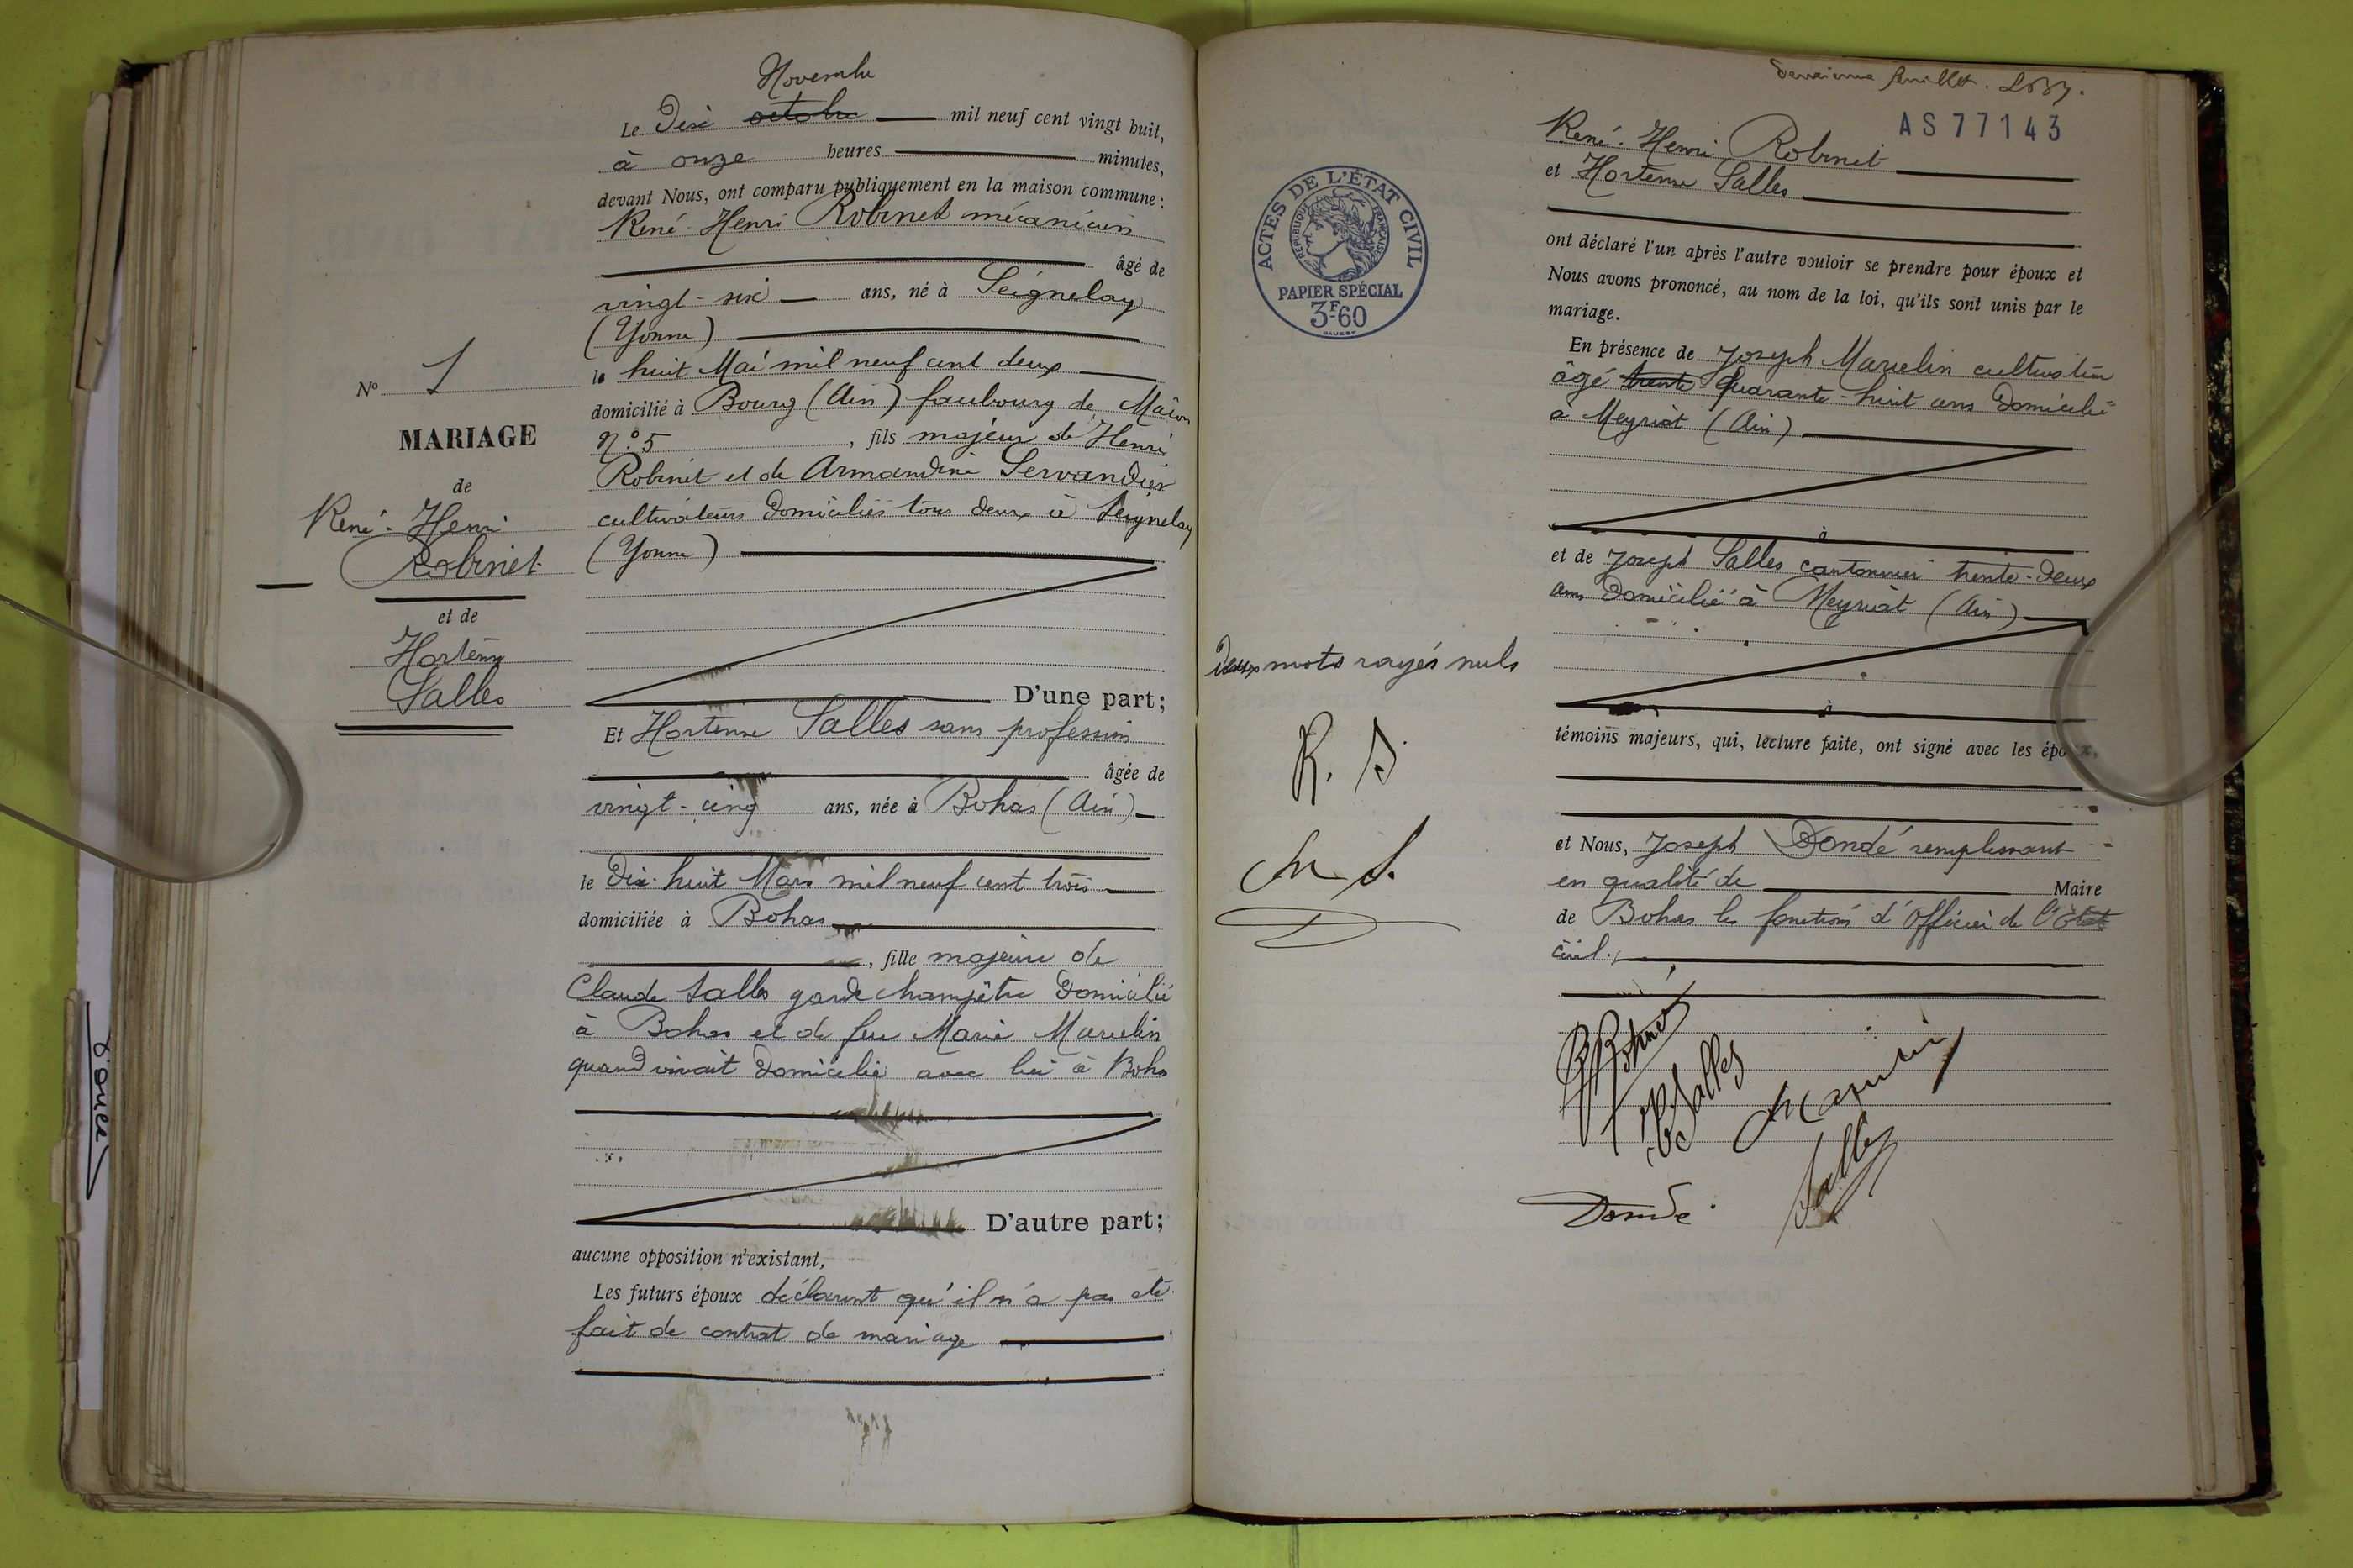 Novembre
Le Dix octobre mil neuf cent vingt huit,
à onze heures minutes,
devant Nous, ont comparu publiquement en la maison commune :
René-Henri Robinet mécanicien
âgé de
vingt-six ans, né à Seignelay
(Yonne)
le huit Mai mil neuf cent deux
domicilié à Bourg (Ain) faubourg de Mâcon
N° 5, fils majeur de Henri
Robinet et de Armandine Servandier
cultivateurs domiciliés tous deux à Seignelay
(Yonne)
D'une part;
Et Hortense Salles sans profession
âgée de
vingt-cinq ans, née à Bohas (Ain)
le Dix-huit Mars mil neuf cent trois
domiciliée à Bohas
, fille majeure de
Claude Salles garde champêtre domicilié
à Bohas et de feu Marie Marcelin
quand vivait domicilié avec lui à Bohas
D'autre part;
aucune opposition n'existant,
Les futurs époux déclarent qu'il n'a pas été
fait de contrat de mariage
N° 1
MARIAGE
de
René-Henri
Robinet
et de
Hortense
Salles
D'ouée
feuillet.
AS77143
René-Henri Robinet
et Hortense Salles
ont déclaré l'un après l'autre vouloir se prendre pour époux et
Nous avons prononcé, au nom de la loi, qu'ils sont unis par le
mariage.
En présence de Joseph Marcelin cultivateur
âgé trente quarante-huit ans domicilié
à Meyriat (Ain)
et de Joseph Salles cantonnier trente-deux
ans domicilié à Meyriat (Ain)
témoins majeurs, qui, lecture faite, ont signé avec les époux,
et Nous, Joseph Dondé remplissant
en qualité de Maire
de Bohas les fonctions d'officier de l'état
civil.
ACTES DE L'ÉTAT CIVIL
RÉPUBLIQUE FRANÇAISE
PAPIER SPÉCIAL
3F60
Deux mots rayés nuls
R. S.
M. S.
D
R Robinet
H Salles
Marcelin
Salles
Dondé